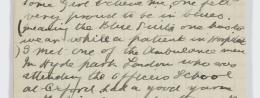 some Girl believe me, one felt
very proud to be in blues,
(meaning the Blue Suits one has to
wear while a patient in Hospital)
I met one of the Ambulance men
in Hyde park London who was
attending the officers School
at Oxford had a good yarn